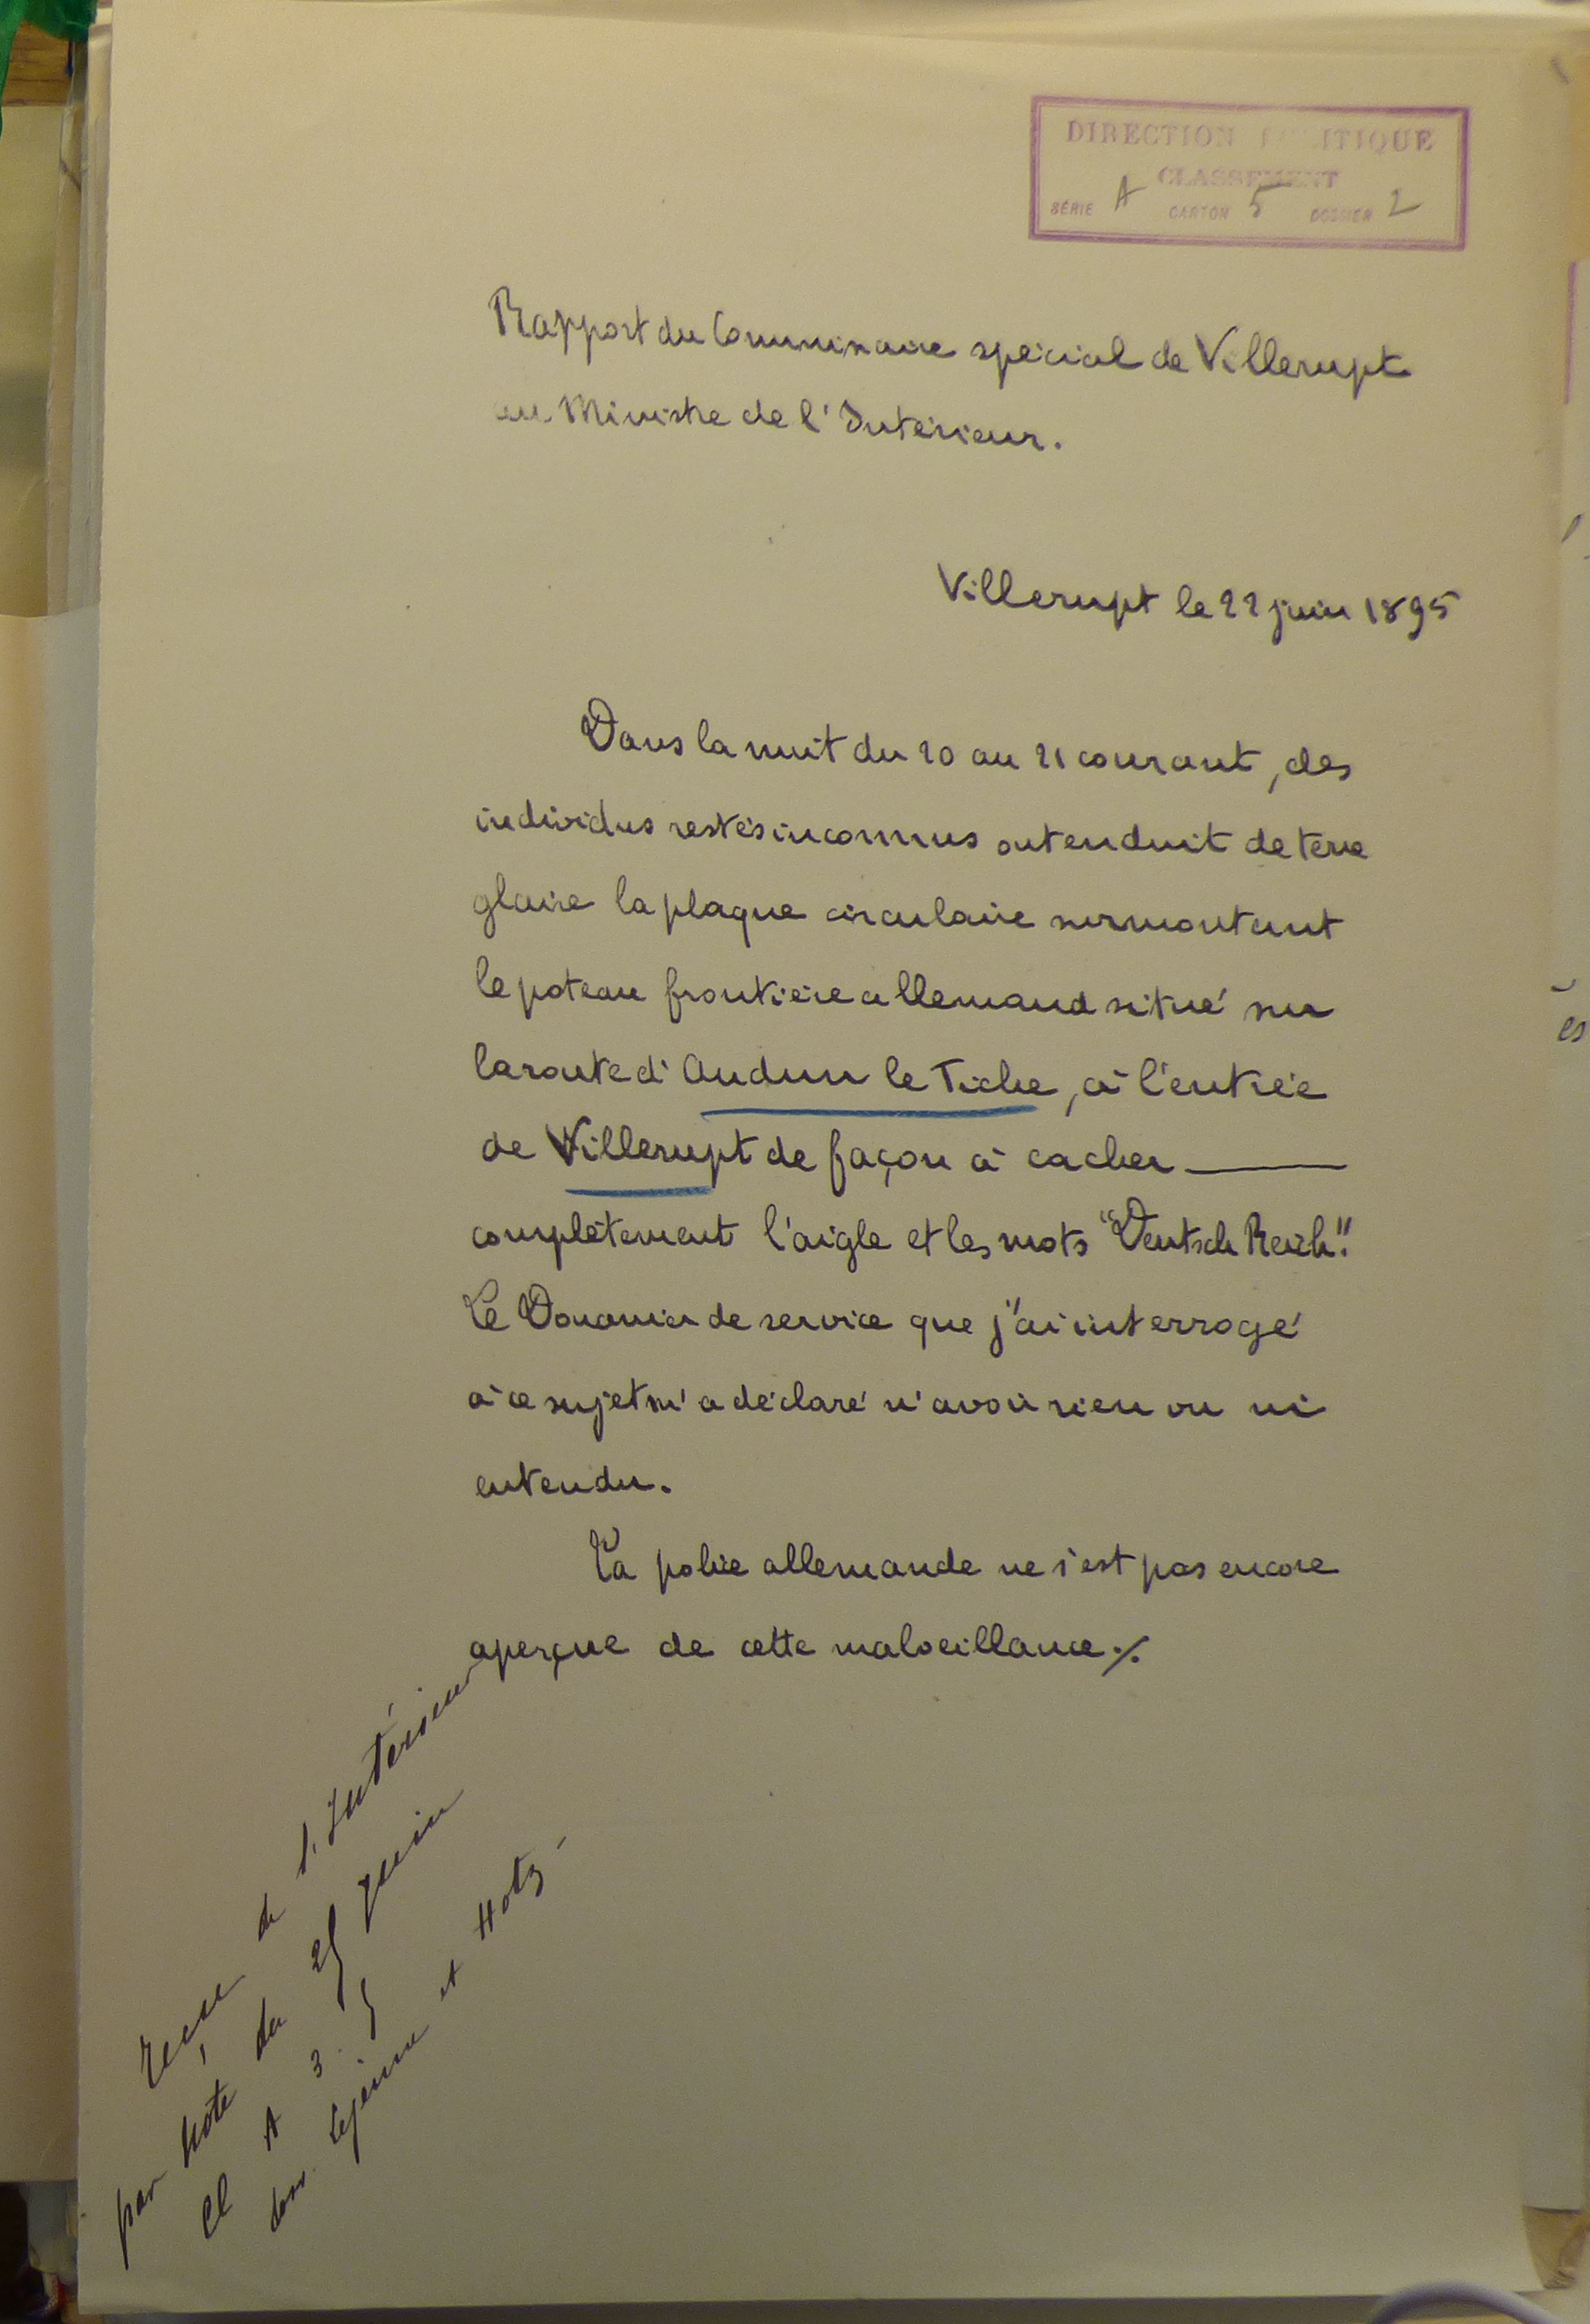 DIRECTION POLITIQUE
CLASSEMENT
SÉRIE A CARTON 5 DOSSIER 2
Rapport du Commissaire spécial de Villerupt
au Ministre de l'Intérieur.
Villerupt le 22 juin 1895
Dans la nuit du 20 au 21 courant, des
individus restés inconnus ont enduit de terre
glaise la plaque circulaire surmontant
le poteau frontière allemand situé sur
la route d'Audun le Tiche, à l'entrée
de Villerupt de façon à cacher
complètement l'aigle et les mots "Deutsch Reich".
Le Douanier de service que j'ai interrogé
à ce sujet m'a déclaré n'avoir rien vu ni
entendu.
La police allemande ne s'est pas encore
aperçue de cette malveillance ./.
reçue de l'Intérieur
par note du 25 juin
Cl A 3. 5
doss. Lejeune et Hotz -